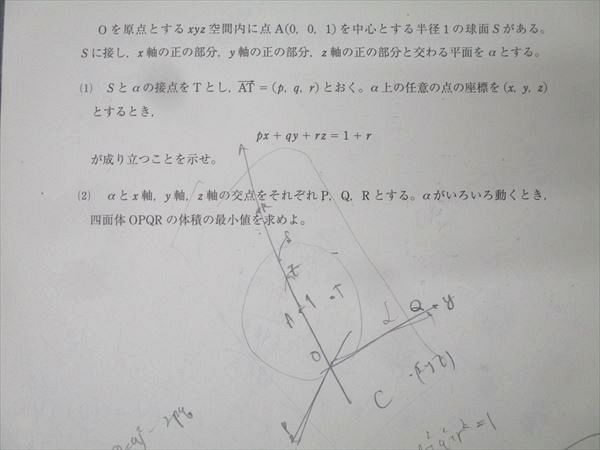 Oを原点とするxyz空間内に点A(0, 0, 1)を中心とする半径1の球面Sがある。
Sに接し, x軸の正の部分, y軸の正の部分, z軸の正の部分と交わる平面をαとする。
(1) Sとαの接点をTとし, AT→=(p, q, r)とおく。α上の任意の点の座標を(x, y, z)
とするとき,
px+qy+rz=1+r
が成り立つことを示せ。
(2) αとx軸, y軸, z軸の交点をそれぞれP, Q, Rとする。αがいろいろ動くとき,
四面体OPQRの体積の最小値を求めよ。
R
S
A 1 T
Q y
O
C